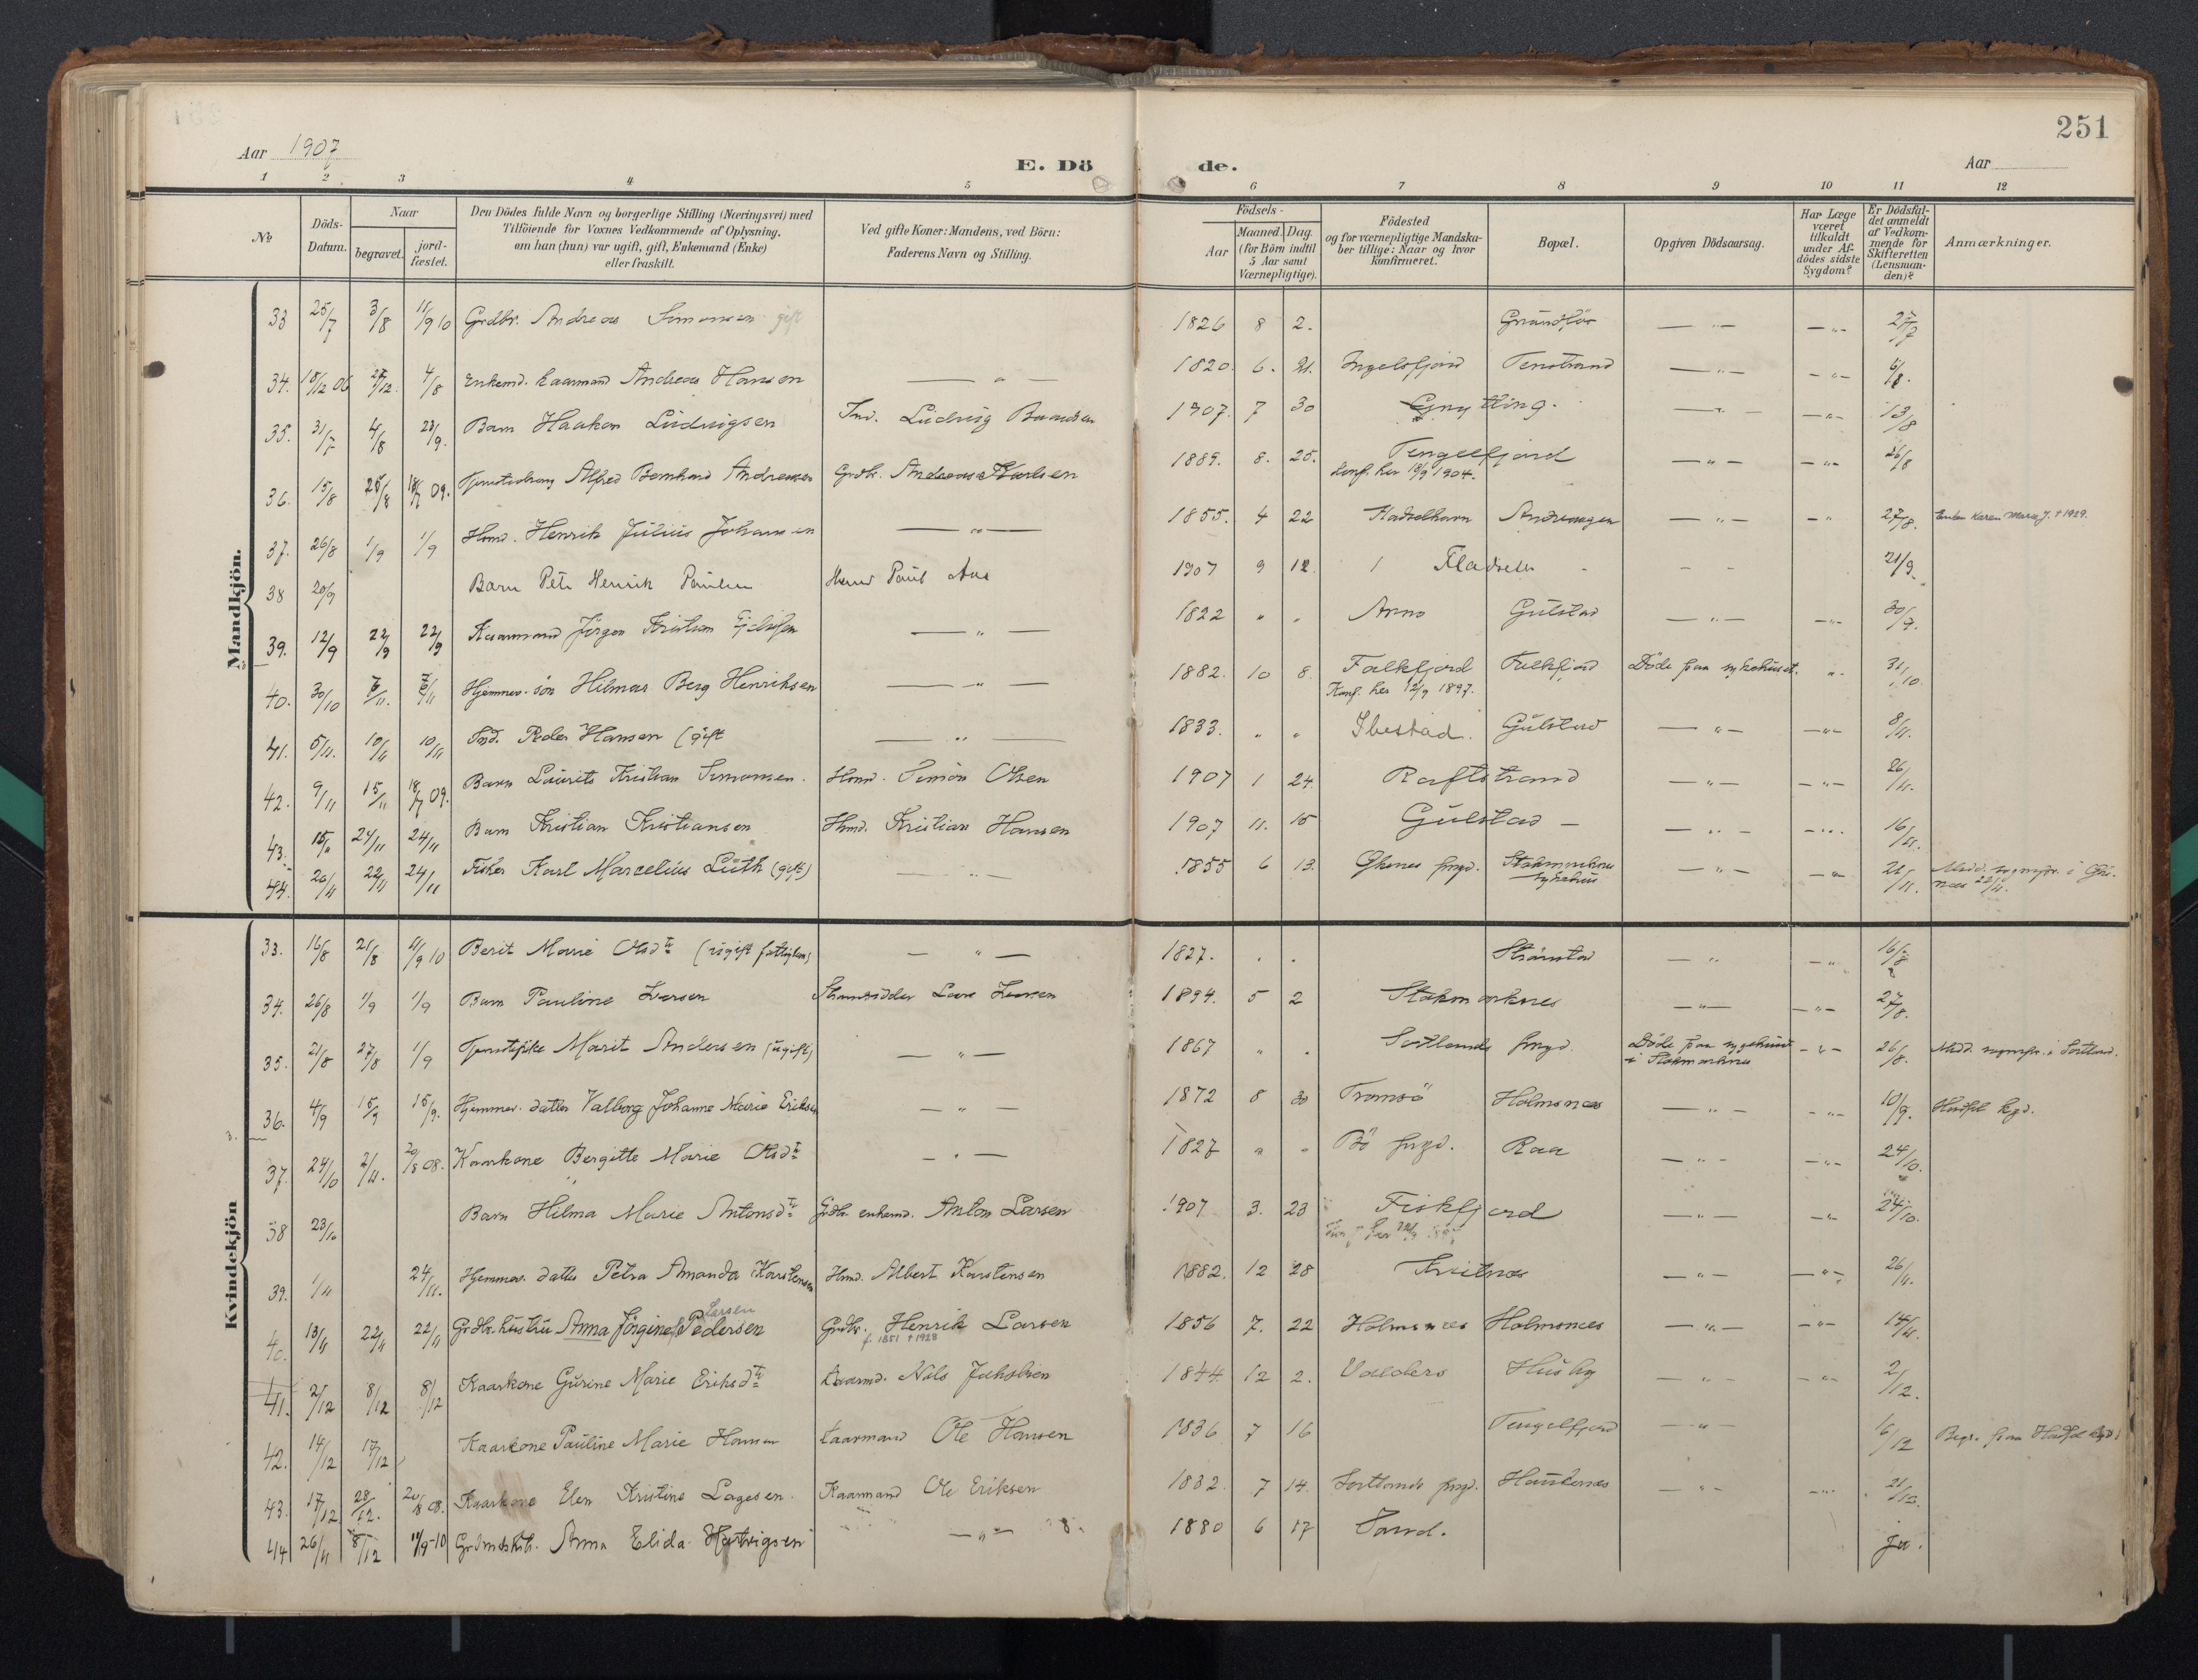 251
Aar 1907
E. Dö de.
Aar
1 2 3 4 5 6 7 8 9 10 11 12
No
Döds-Datum.
Naar
begravet.
jord-fæstet.
Den Dödes fulde Navn og borgerlige Stilling (Næringsvei) med
Tilföiende for Voxnes Vedkommende af Oplysning,
om han (hun) var ugift, gift, Enkemand (Enke)
eller fraskilt.
Ved gifte Koner: Mandens, ved Börn:
Faderens Navn og Stilling.
Födsels-
Aar
Maaned. Dag.
(for Börn indtil
5 Aar samt
Værnepligtige).
Födested
og for værnepligtige Mandska-
ber tillige: Naar og hvor
konfirmeret.
Bopæl.
Opgiven Dödsaarsag.
Har Læge
været
tilkaldt
under Af-
dödes sidste
Sygdom?
Er Dödsfal-
det anmeldt
af Vedkom-
mende for
Skifteretten
(Lensman-
den)?
Anmærkninger.
Mandkjön.
33 25/7 3/8 11/9 10 Grdbr. Andreas Simonsen gift 1826 8 2. 27/7
34. 18/12 06 27/12. 4/8 Enkemd. kaarmand Andreas Hansen — " — 1820. 6. 21. Ingelsfjord Tenstrand — " — — " — 6/8.
35. 31/7 4/8 23/9. Barn Haakon Ludvigsen Ind. Ludvig 1907. 7 30 — " — — " — 13/8
36. 15/8 25/8 18/7 09. Alfred Bernhard Andreassen Grdbr. Andreas Karlsen 1889. 8. 25. Tengelfjord — " — — " — 26/8
Konf. her 18/9 1904.
37. 26/8 1/9 1/9 Hsmd. Henrik Julius Johansen — " — 1855. 4 22 Hadselhavn — " — — " 27/8. Enken Karen Marie J. † 1929.
38 20/9 Barn Peter Henrik Paulsen Paul 1907 9 12. 21/9.
39. 12/9 22/9 22/9 Kaarmand Jörgen Kristian — " — 1822 " " Gulstad — " — — " — 30/9.
40. 30/10 7/11. 7/11 Hjemmev. sön Hilmar Berg Henriksen — " — 1882. 10 8. Falkfjord Falkfjord Döde paa sykehuset. " 31/10.
Konf. her 12/9 1897.
41. 5/11. 10/11 10/11 Ind. Peder Hansen (gift — " — 1833. " " Ibestad. Gulstad — " — — " — 8/11.
42. 9/11 15/11 18/7 09. Barn Laurits Kristian Simonsen. Hsmd. Simon Olsen 1907 1 24. Raftstrand — " — — " — 26/11.
43. 15/11 24/11 24/11 Barn Kristian Kristiansen Hsmd. Kristian Hansen 1907 11. 15 Gulstad — — " — — " — 16/11.
44. 20/11 22/11 24/11 Fisker Karl Marcelius Lüth (gift) — " — 1855 6 13. Öksnes prgd. Stokmarknes — " — — " 21/11.
sykehus
Kvindekjön
33. 16/8 21/8 11/9 10 Berit Marie Olsdtr (ugift fattiglem) — " — 1827. " " — " — " 16/8
34. 26/8 1/9 1/9 Barn Pauline Larsen 1894. 5 2 Stokmarknes — " — — " — 27/8.
35. 21/8 27/8 1/9 Tjenestepike Marit Andersen (ugift) — " — 1867 " " Sortlands prgd. Döde paa sygehuset — " — 26/8. Medd. sognepr. i Sortland.
i Stokmarknes
36. 4/9 15/9 15/9. Hjemmev. datter Valborg Johanne Marie Eriksen — " — 1872 8 30 Tromsö Holmsnes — " — — " — 10/9. Hadsel kgd.
37. 24/10 2/11. 20/8 08. Kaarkone Bergitte Marie Olsdtr — " — 1827 " " Bö prgd. Raa — " — — " — 24/10.
38 23/10 Barn Hilma Marie Antonsdtr Grdbr. enkemd. Anton Larsen 1907 3. 23 Fiskfjord — " — — " 24/10.
39. 1/11 24/11. Hjemmev. datter Petra Amanda Karstensen Hsmd. Albert Karstensen 1882. 12 28 — " — — " — 26/11.
40. 13/11 22/11 22/11 Grdbr. hustru Anna Jörgine Pedersen Larsen Grdbr. Henrik Larsen 1856 7. 22 Holmsnes Holmsnes — " — — " — 14/11.
f. 1851 † 1928
41. 2/12 8/12 8/12 Kaarkone Gurine Marie Eriksdtr Kaarmd. Nils Jakobsen 1844. 12 2. Valders Husby — " — — " — 2/12.
42. 14/12 17/12 Kaarkone Pauline Marie Hansen kaarmand Ole Hansen 1836 7 16 Tengelfjord — " 16/12 Begr. paa Hadsel kgd.
43. 17/12 28/12. 20/8 08. Kaarkone Elen Kristine Lagesen. Kaarmand Ole Eriksen 1832. 7 14. Sortlands prgd. Haukenes — " — — " — 21/12.
44 26/11 8/12 11/9-10 Anna Elida Hartvigsen — " — 1880 6 17 Sand. ja.